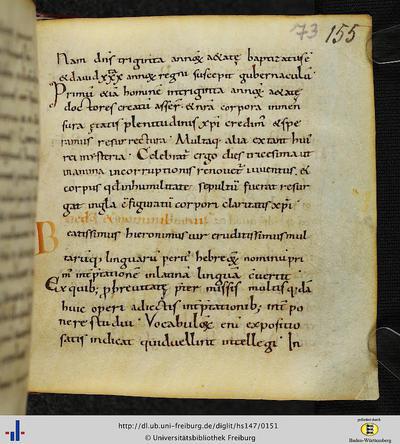 73 155
Nam dn̅s triginta annoꝝ aetate baptizatus ē
& dauid xxx annoꝝ regni suscepit gubernaculū
Primū etiā hominē intriginta annoꝝ aetate
doctores creatū asser̅ & nr̅a corpora inmen
sura etatis plenitudinis xp̅i credim᷒ & spe
ramus resurrectura. Multaq; alia extant hui᷒
rei mysteria. Celebrat᷒ ergo dies tricesima ut
mannna incorruptionis renouet᷒ iuuentus. &
corpus qd̅ inhumilitate sepultū fuerat resur
gat ingl̅a c̅figuratū corpori claritatis xp̅i
nominibus
Beatissimus hieronimus uir eruditissimus mul
tarūq; linguarū perit᷒ hebreoꝝ nominū pri
m᷒ int̅p̅tatione inlatinā linguā c̅uertit
Ex quib; ꝓ breuitate p̅ter missis multis q;dā
huic operi adiectis int̅p̅tationib; int̅ po
nere studui. Vocabuloꝝ eni̅ expositio
satis indicat quid uellint intellegi. In
http://dl.ub.uni-freiburg.de/diglit/hs147/0151
© Universitätsbibliothek Freiburg
gefördert durch
Baden-Württemberg